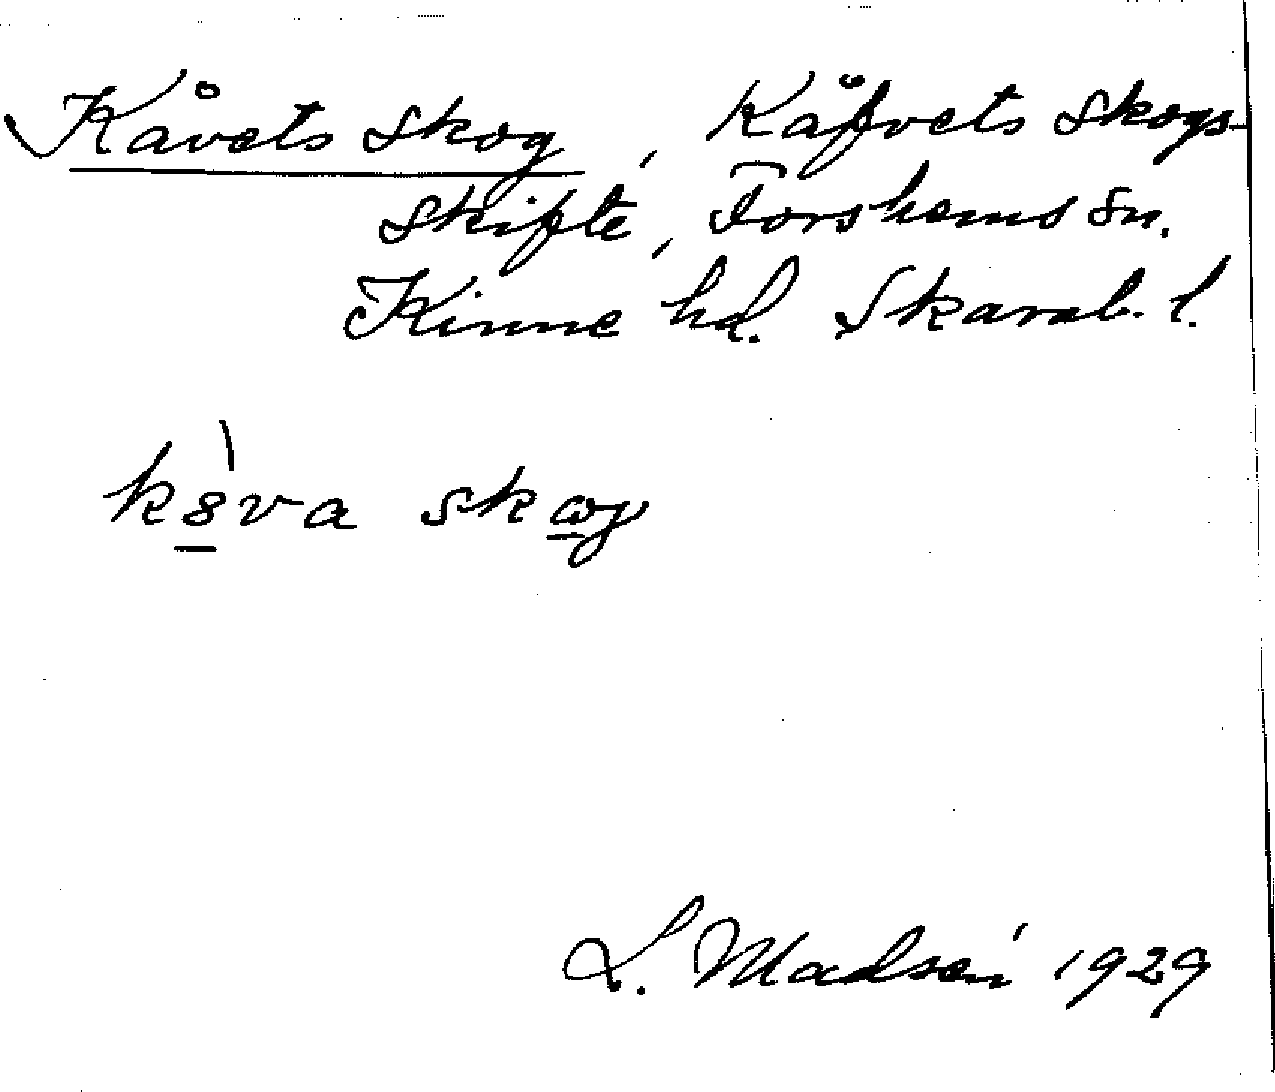 Kåvets skog, Kåfvets Skogs-
skifte, Forshems sn.
Kinne hd. Skarab. l.
k8̲̀va skωg
L. Madsén 1929